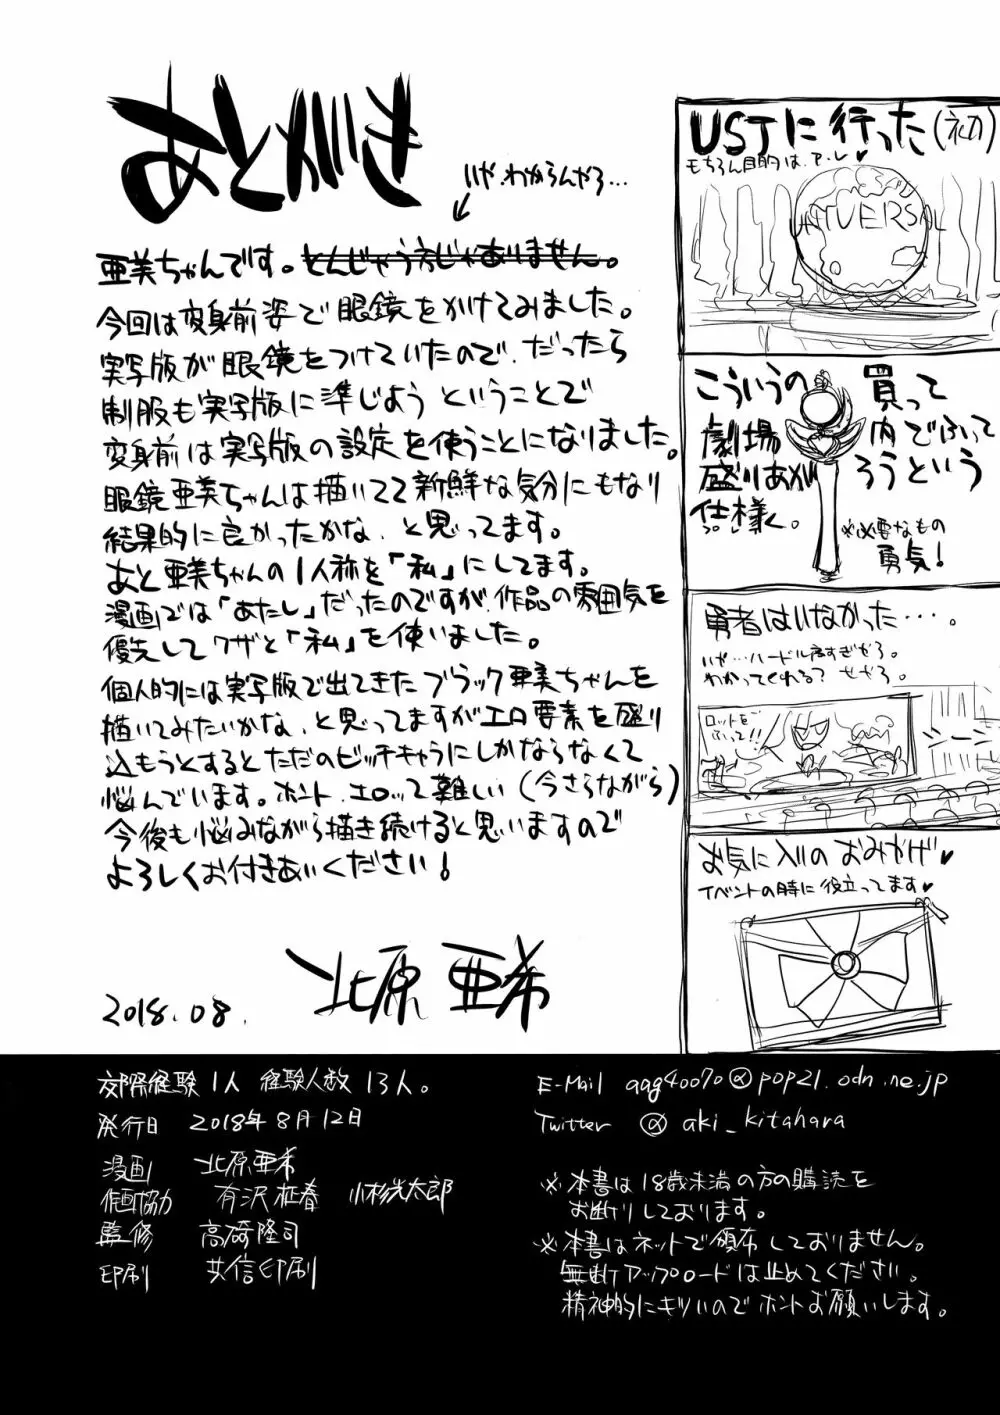 あとがき
いや、わからんやろ…
亜美ちゃんです。とんじゃう方じゃありません。
今回は変身前姿で眼鏡をかけてみました。
実写版が眼鏡をつけていたので、だったら
制服も実写版に準じよう ということで
変身前は実写版の設定を使うことになりました。
眼鏡亜美ちゃんは描いてて新鮮な気分にもなり
結果的に良かったかな、と思ってます。
あと亜美ちゃんの1人称を「私」にしてます。
漫画では「あたし」だったのですが、作品の雰囲気を
優先してワザと「私」を使いました。
個人的には実写版で出てきたブラック亜美ちゃんを
描いてみたいかな、と思ってますがエロ要素を盛り
込もうとするとただのビッチキャラにしかならなくて
悩んでいます。ホント、エロって難しい(今さらながら)
今後も悩みながら描き続けると思いますので
よろしくお付きあいください!
2018.08.
北原亜希
USJに行った(初)
もちろん目的は、ア・レ♥
UNIVERSAL
こういうの買って
劇場内でふって
盛りあがろうという
仕様。
※必要なもの
勇気!
勇者はいなかった…。
いや…ハードル高すぎだろ。
わかってくれる?ぜだろ。
ロッドを
ふって!!
シーン
お気に入りのおみやげ♥
イベントの時に役立ってます♥
交際経験 1人 経験人数 13人。
発行日 2018年8月12日
漫画 北原亜希
作画協力 有沢柾春 小杉光太郎
監修 高崎隆司
印刷 共信印刷
E-Mail aag40070@pop21.odn.ne.jp
Twitter @aki_kitahara
※本書は18歳未満の方の購読を
お断りしております。
※本書はネットで頒布しておりません。
無断アップロードは止めてください。
精神的にキツいのでホントお願いします。